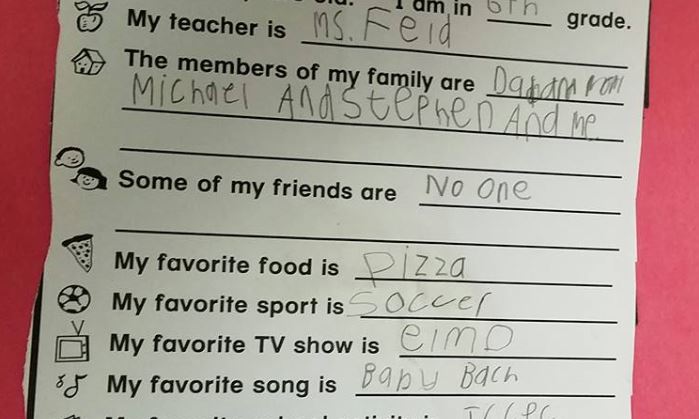 I am in 6th grade.
My teacher is Ms. Feld
The members of my family are Dad and Mom
Michael And Stephen And me
Some of my friends are No one
My favorite food is Pizza
My favorite sport is Soccer
My favorite TV show is elmo
My favorite song is Baby Bach